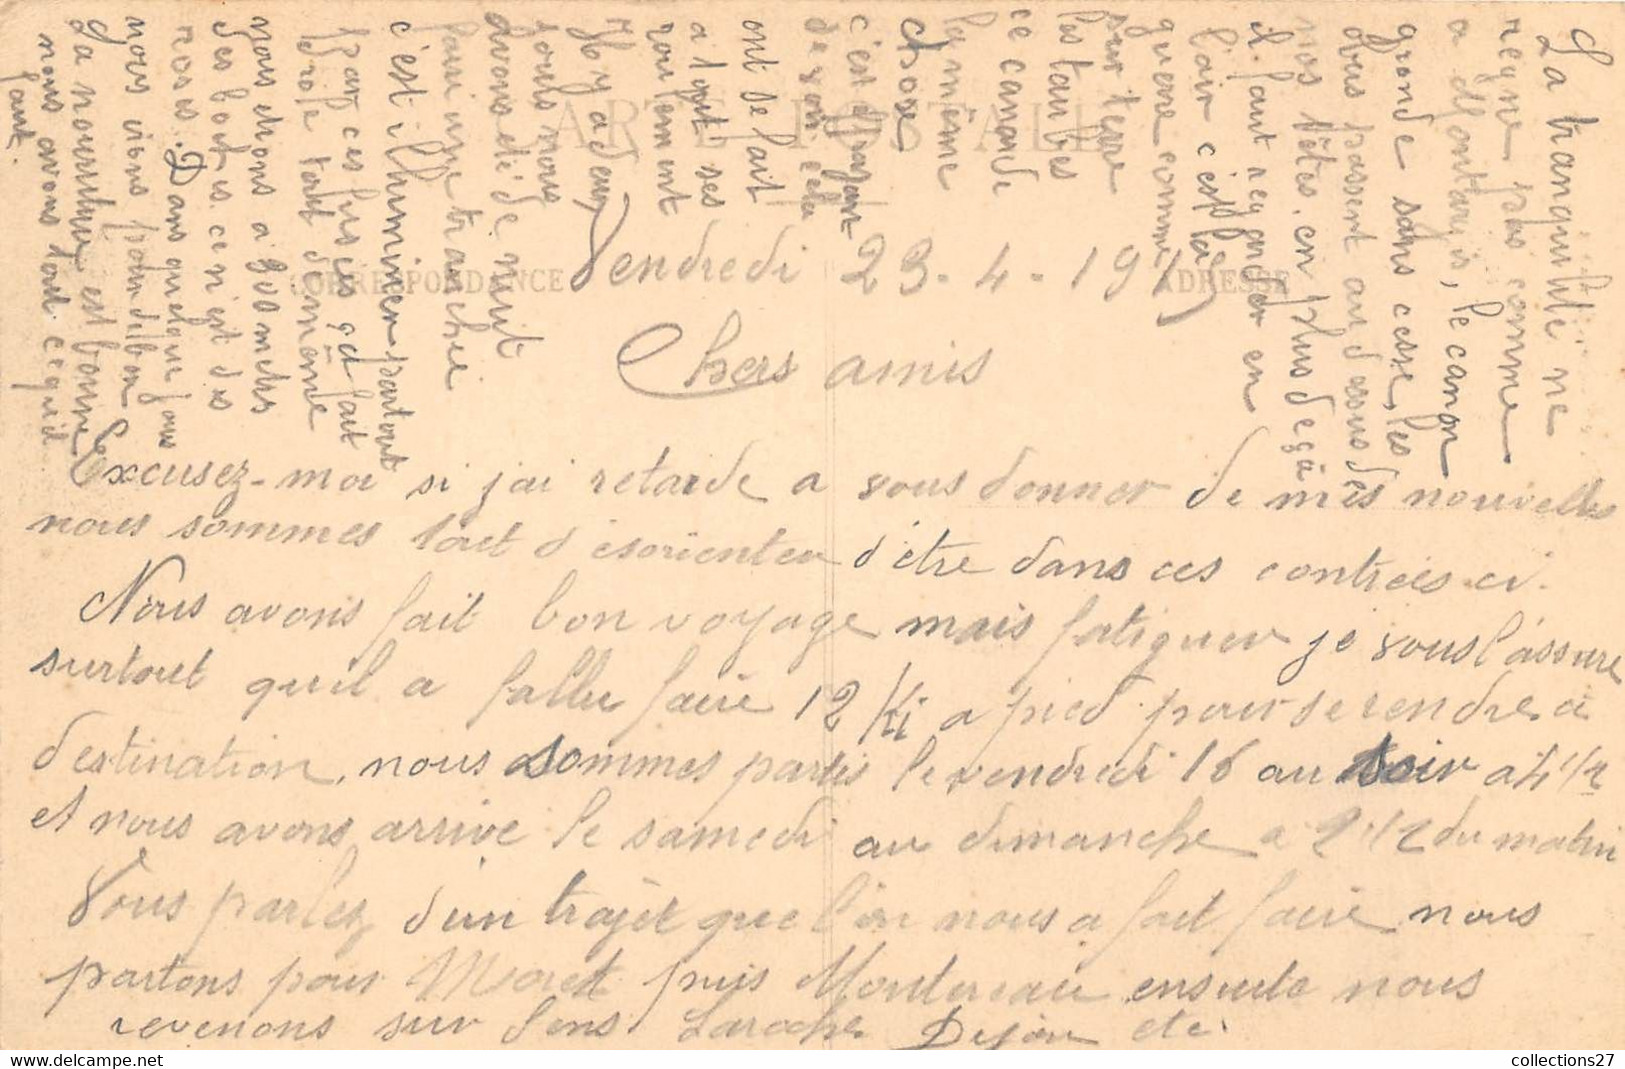 CARTE POSTALE
CORRESPONDANCE
ADRESSE
Vendredi 23-4-1915
Chers amis
Excusez-moi si j'ai retarde a vous donner de mes nouvelles
nous sommes tout d'ésorienter d'être dans ces contrées-ci.
Nous avons fait bon voyage mais fatiguer je vous l'assure
surtout qu'il a fallu faire 12 Ki a pied pour se rendre a
destination, nous sommes partis le vendredi 16 au soir a 4 1/2
et nous avons arrive le samedi au dimanche a 2 1/2 du matin
Vous parlez d'un trajet que l'on nous a fait faire nous
partons pour Moret puis Montereau ensuite nous
revenons sur Sens Laroche Dijon etc.
La tranquilité ne
regne pas comme
a Montargis, le canon
gronde sans cesse, les
obus passent au dessus de
nos têtes en plus de ça
il faut regarder en
l'air c'est la
guerre comme
sur terre
les taubes
ce canarde
la même
chose
c'est effrayant
de voir cela
ont se fait
a tout ses
roulement
Il y a deux
jours nous
avons été de nuit
faire une tranchée
c'est illuminer partout
par ces fusées ça fait
drole tout de même
nous étions a 800 metres
des boches ce n'est des
roses. Dans quelque jours
nous irons pour de bon
La nourriture est bonne
nous avons tout ce qu'il
faut.
collections27